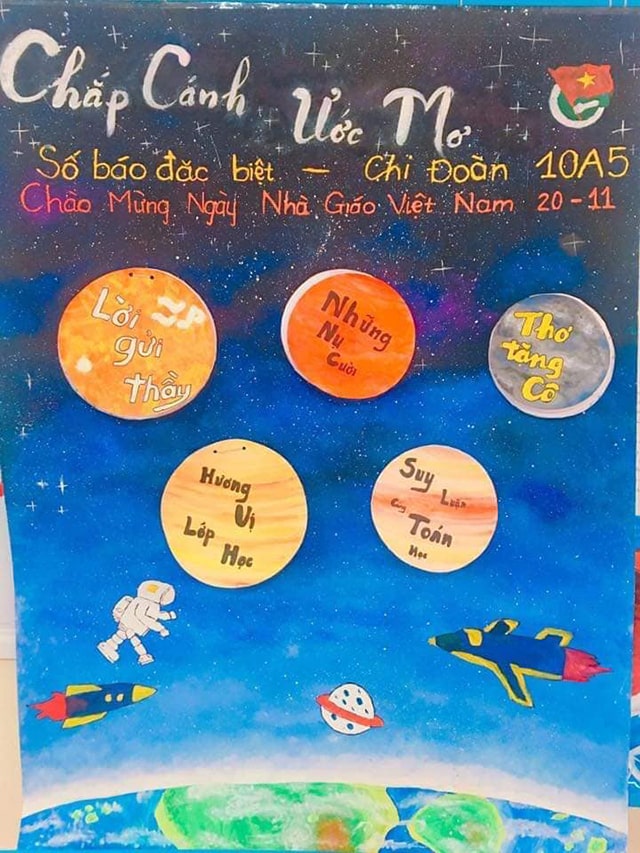 Chắp Cánh Ước Mơ
Số báo đặc biệt - Chi Đoàn 10A5
Chào Mừng Ngày Nhà Giáo Việt Nam 20-11
Lời
gửi
thầy
Những
Nụ
Cười
Thơ
tặng
Cô
Hương
Vị
Lớp Học
Suy Luận
Cùng
Toán
Học